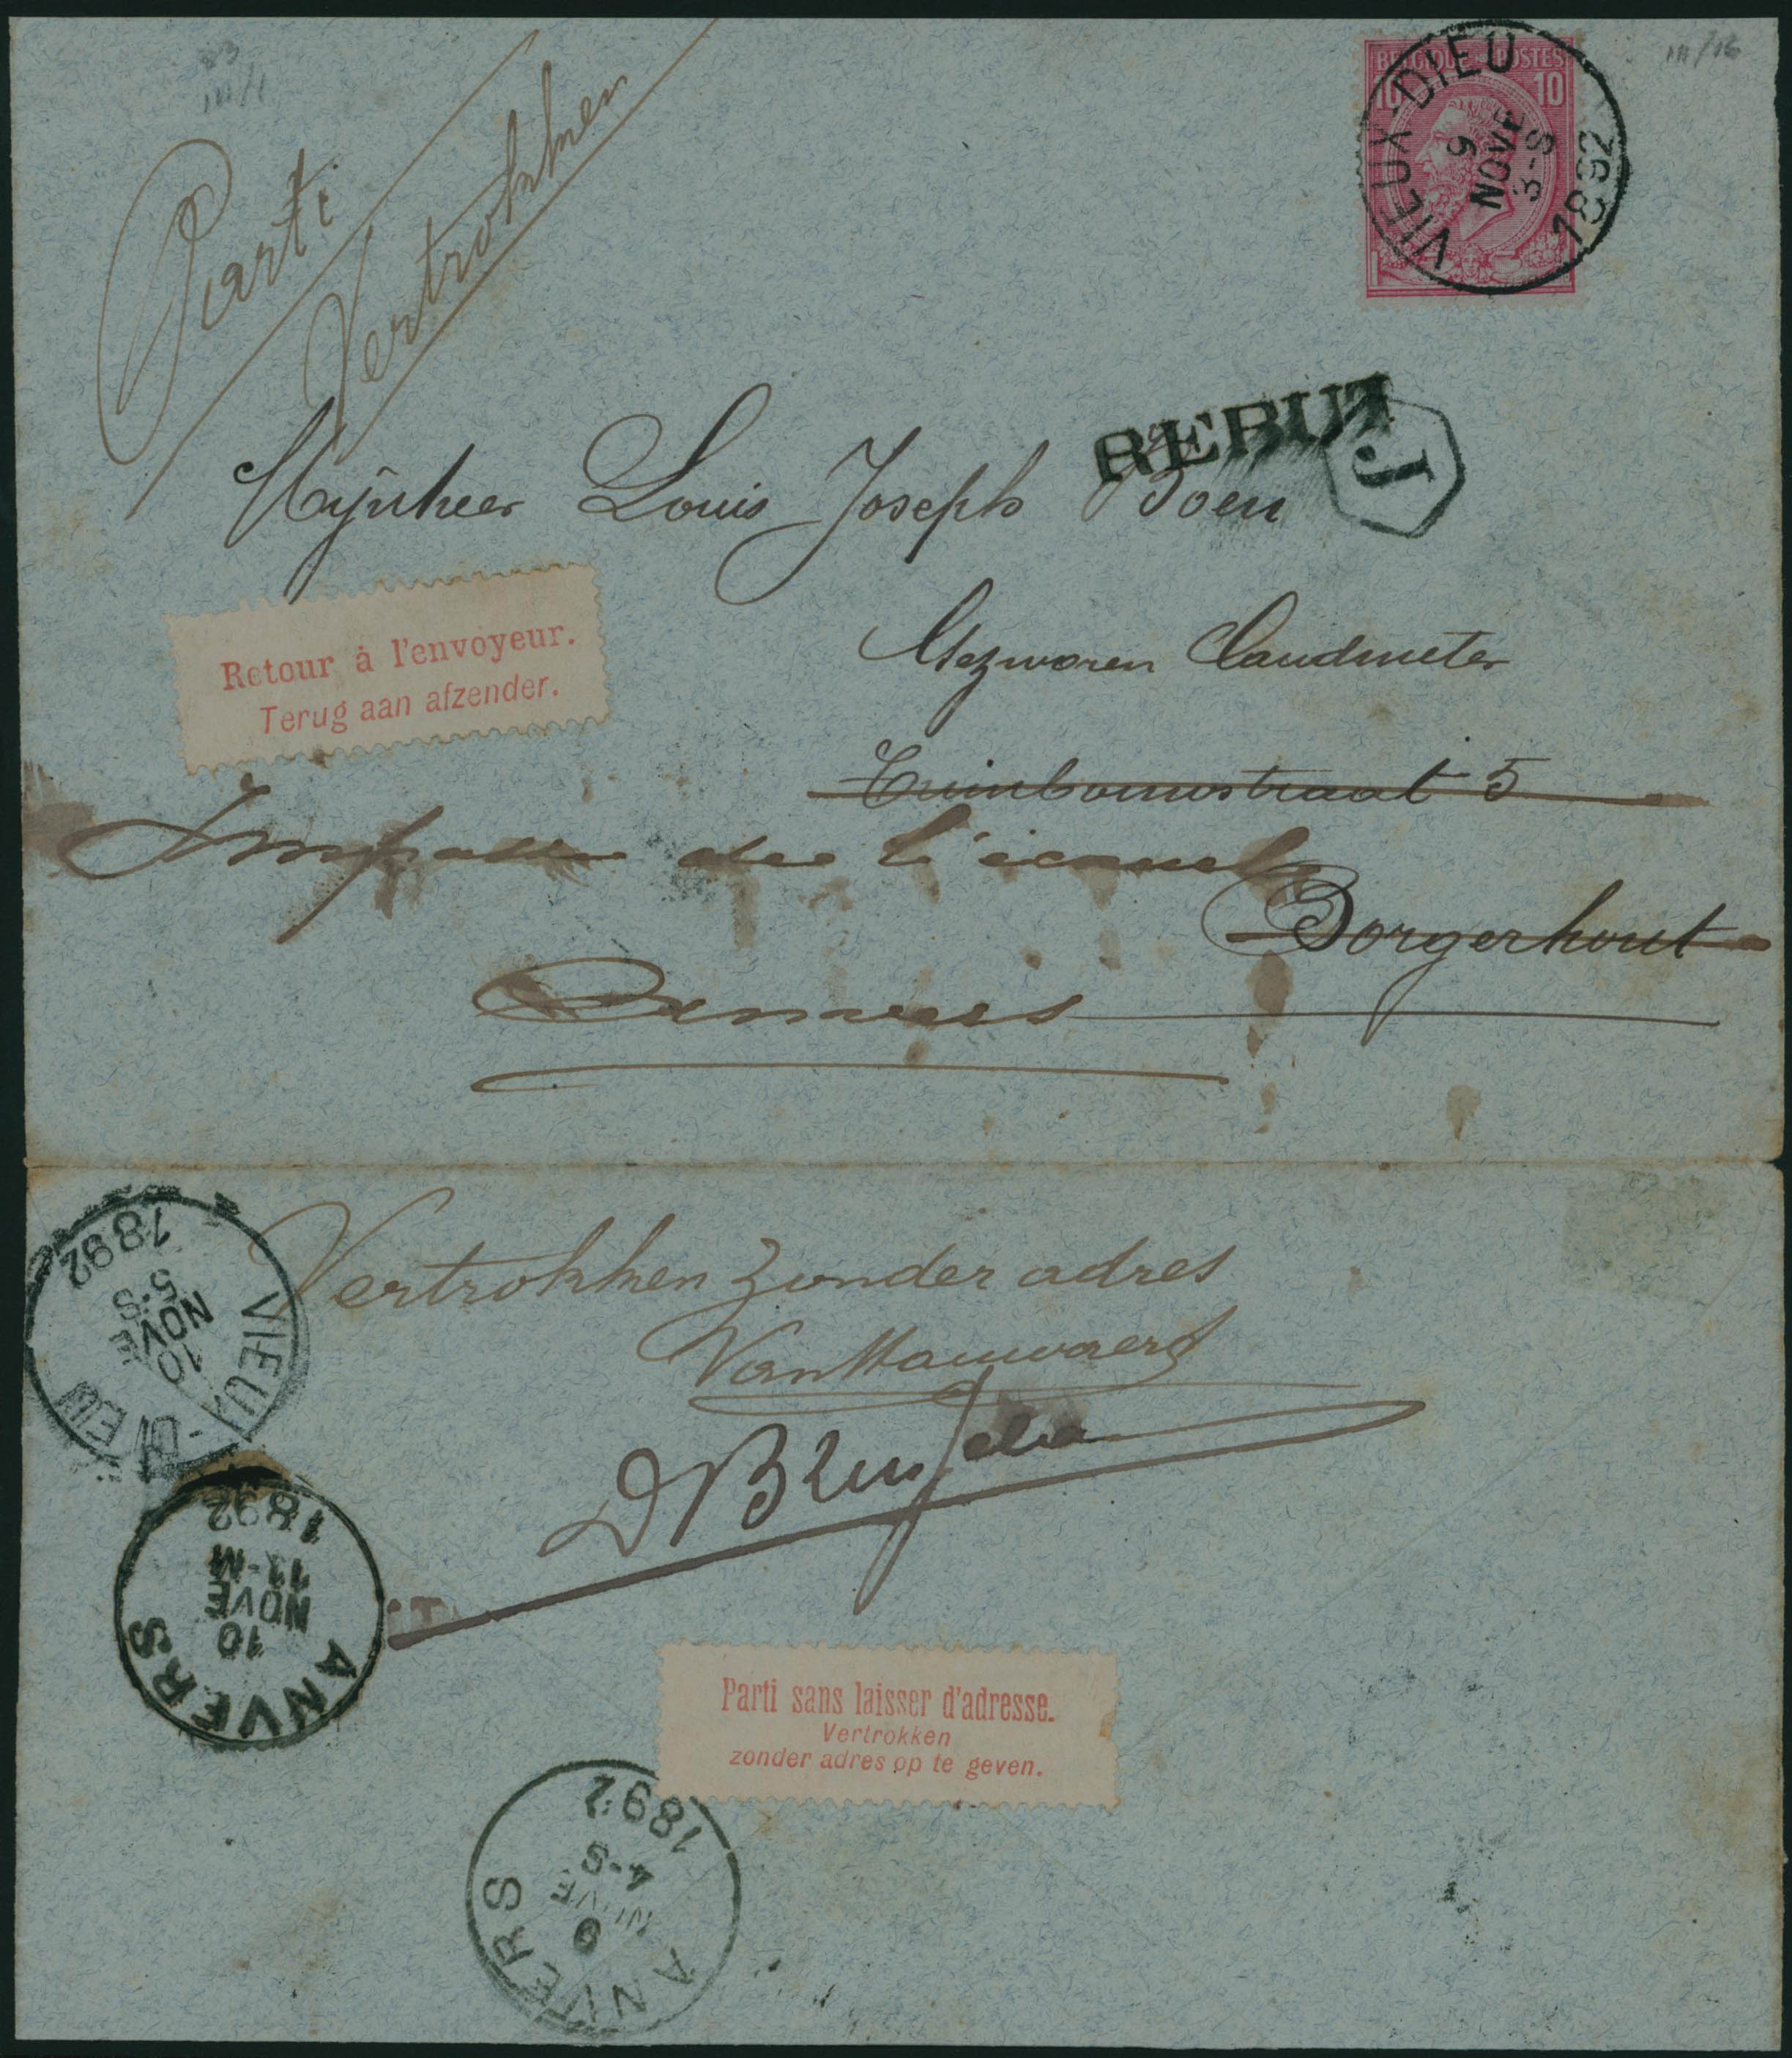 Parti
Vertrokken
BELGIQUE POSTES
10 10
VIEUX-DIEU
9
NOVE
3-S
1892
REBUT
J
Mijnheer Louis Joseph Boen
Gezworen Landmeter
Tuinbouwstraat 5
Retour à l'envoyeur.
Terug aan afzender.
Impasse de l'
Borgerhout
Anvers
Vertrokken zonder adres
VIEUX-DIEU
10
NOVE
5-S
1892
ANVERS
10
NOVE
11-M
1892
Parti sans laisser d'adresse.
Vertrokken
zonder adres op te geven.
ANVERS
9
NOVE
4-S
1892